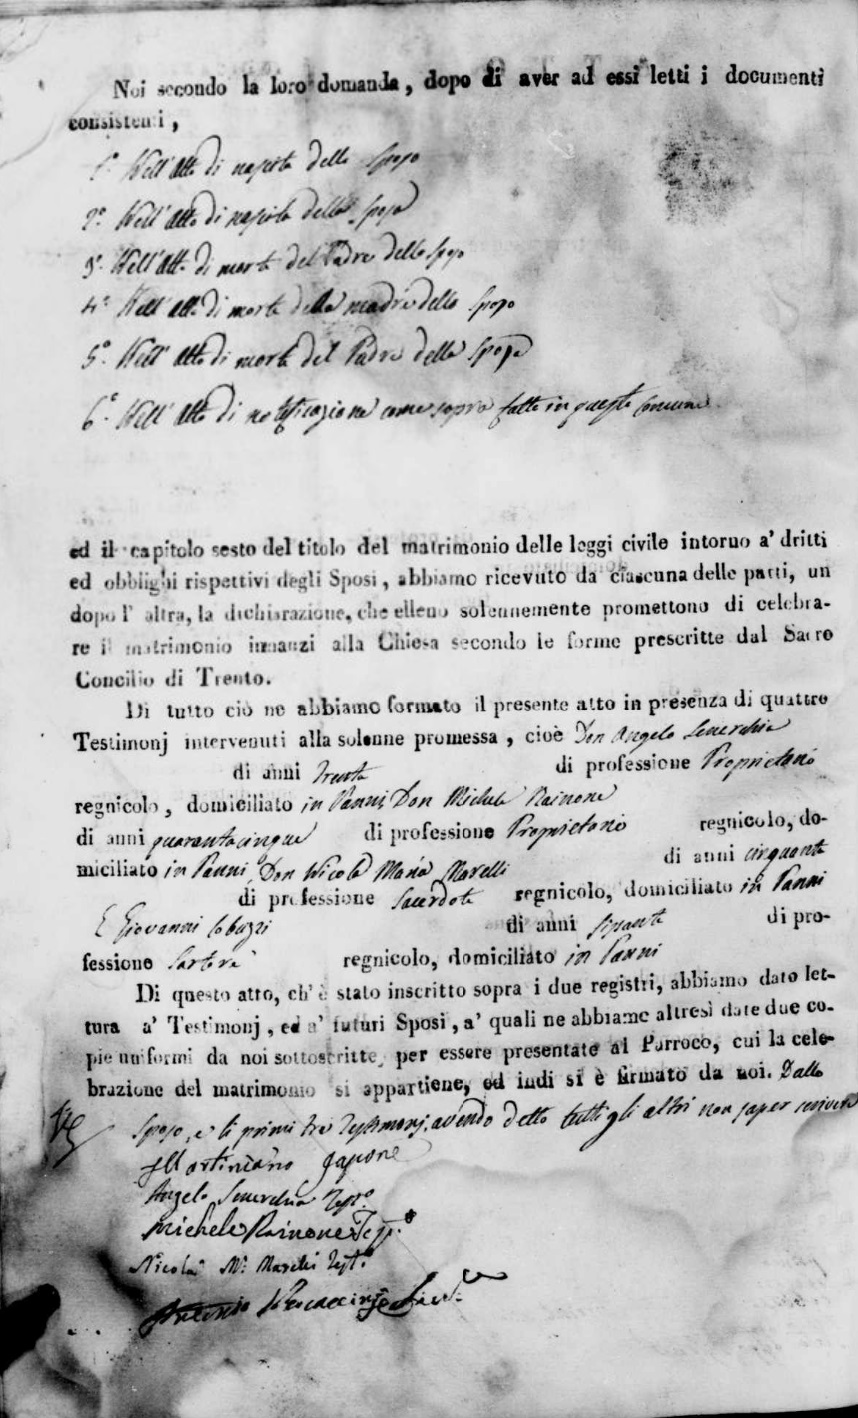 Noi secondo la loro domanda, dopo di aver ad essi letti i documenti
consistenti,
1.° Nell'atto di nascita dello Sposo
2.° Nell'atto di nascita della Sposa
3.° Nell'atto di morte del Padre dello Sposo
4.° Nell'atto di morte della madre dello Sposo
5.° Nell'atto di morte del Padre della Sposa
6.° Nell'atto di notificazione come sopra fatta in questo comune
ed il capitolo sesto del titolo del matrimonio delle leggi civile intorno a' dritti
ed obblighi rispettivi degli Sposi, abbiamo ricevuto da ciascuna delle parti, un
dopo l' altra, la dichiarazione, che elleno solennemente promettono di celebra-
re il matrimonio innanzi alla Chiesa secondo le forme prescritte dal Sacro
Concilio di Trento.
Di tutto ciò ne abbiamo formato il presente atto in presenza di quattro
Testimonj intervenuti alla solenne promessa, cioè Don Angelo Senerchia
di anni trenta di professione Proprietario
regnicolo, domiciliato in Panni, Don Michele Rainone
di anni quarantacinque di professione Proprietario regnicolo, do-
miciliato in Panni, Don Nicola Maria Morelli di anni cinquanta
di professione Sacerdote regnicolo, domiciliato in Panni
E Giovanni di anni di pro-
fessione Sartore regnicolo, domiciliato in Panni
Di questo atto, ch' è stato inscritto sopra i due registri, abbiamo dato let-
tura a' Testimonj, ed a' futuri Sposi, a' quali ne abbiamo altresì date due co-
pie uniformi da noi sottoscritte, per essere presentate al Parroco, cui la cele-
brazione del matrimonio si appartiene, ed indi si è firmato da noi. Dallo
Sposo, e li primi tre Testimonj, avendo detto tutti gli altri non saper scrivere
Martiniano
Angelo Senerchia Test.°
Michele Rainone Test.°
Nicola M.ª Morelli Test.°
Antonio